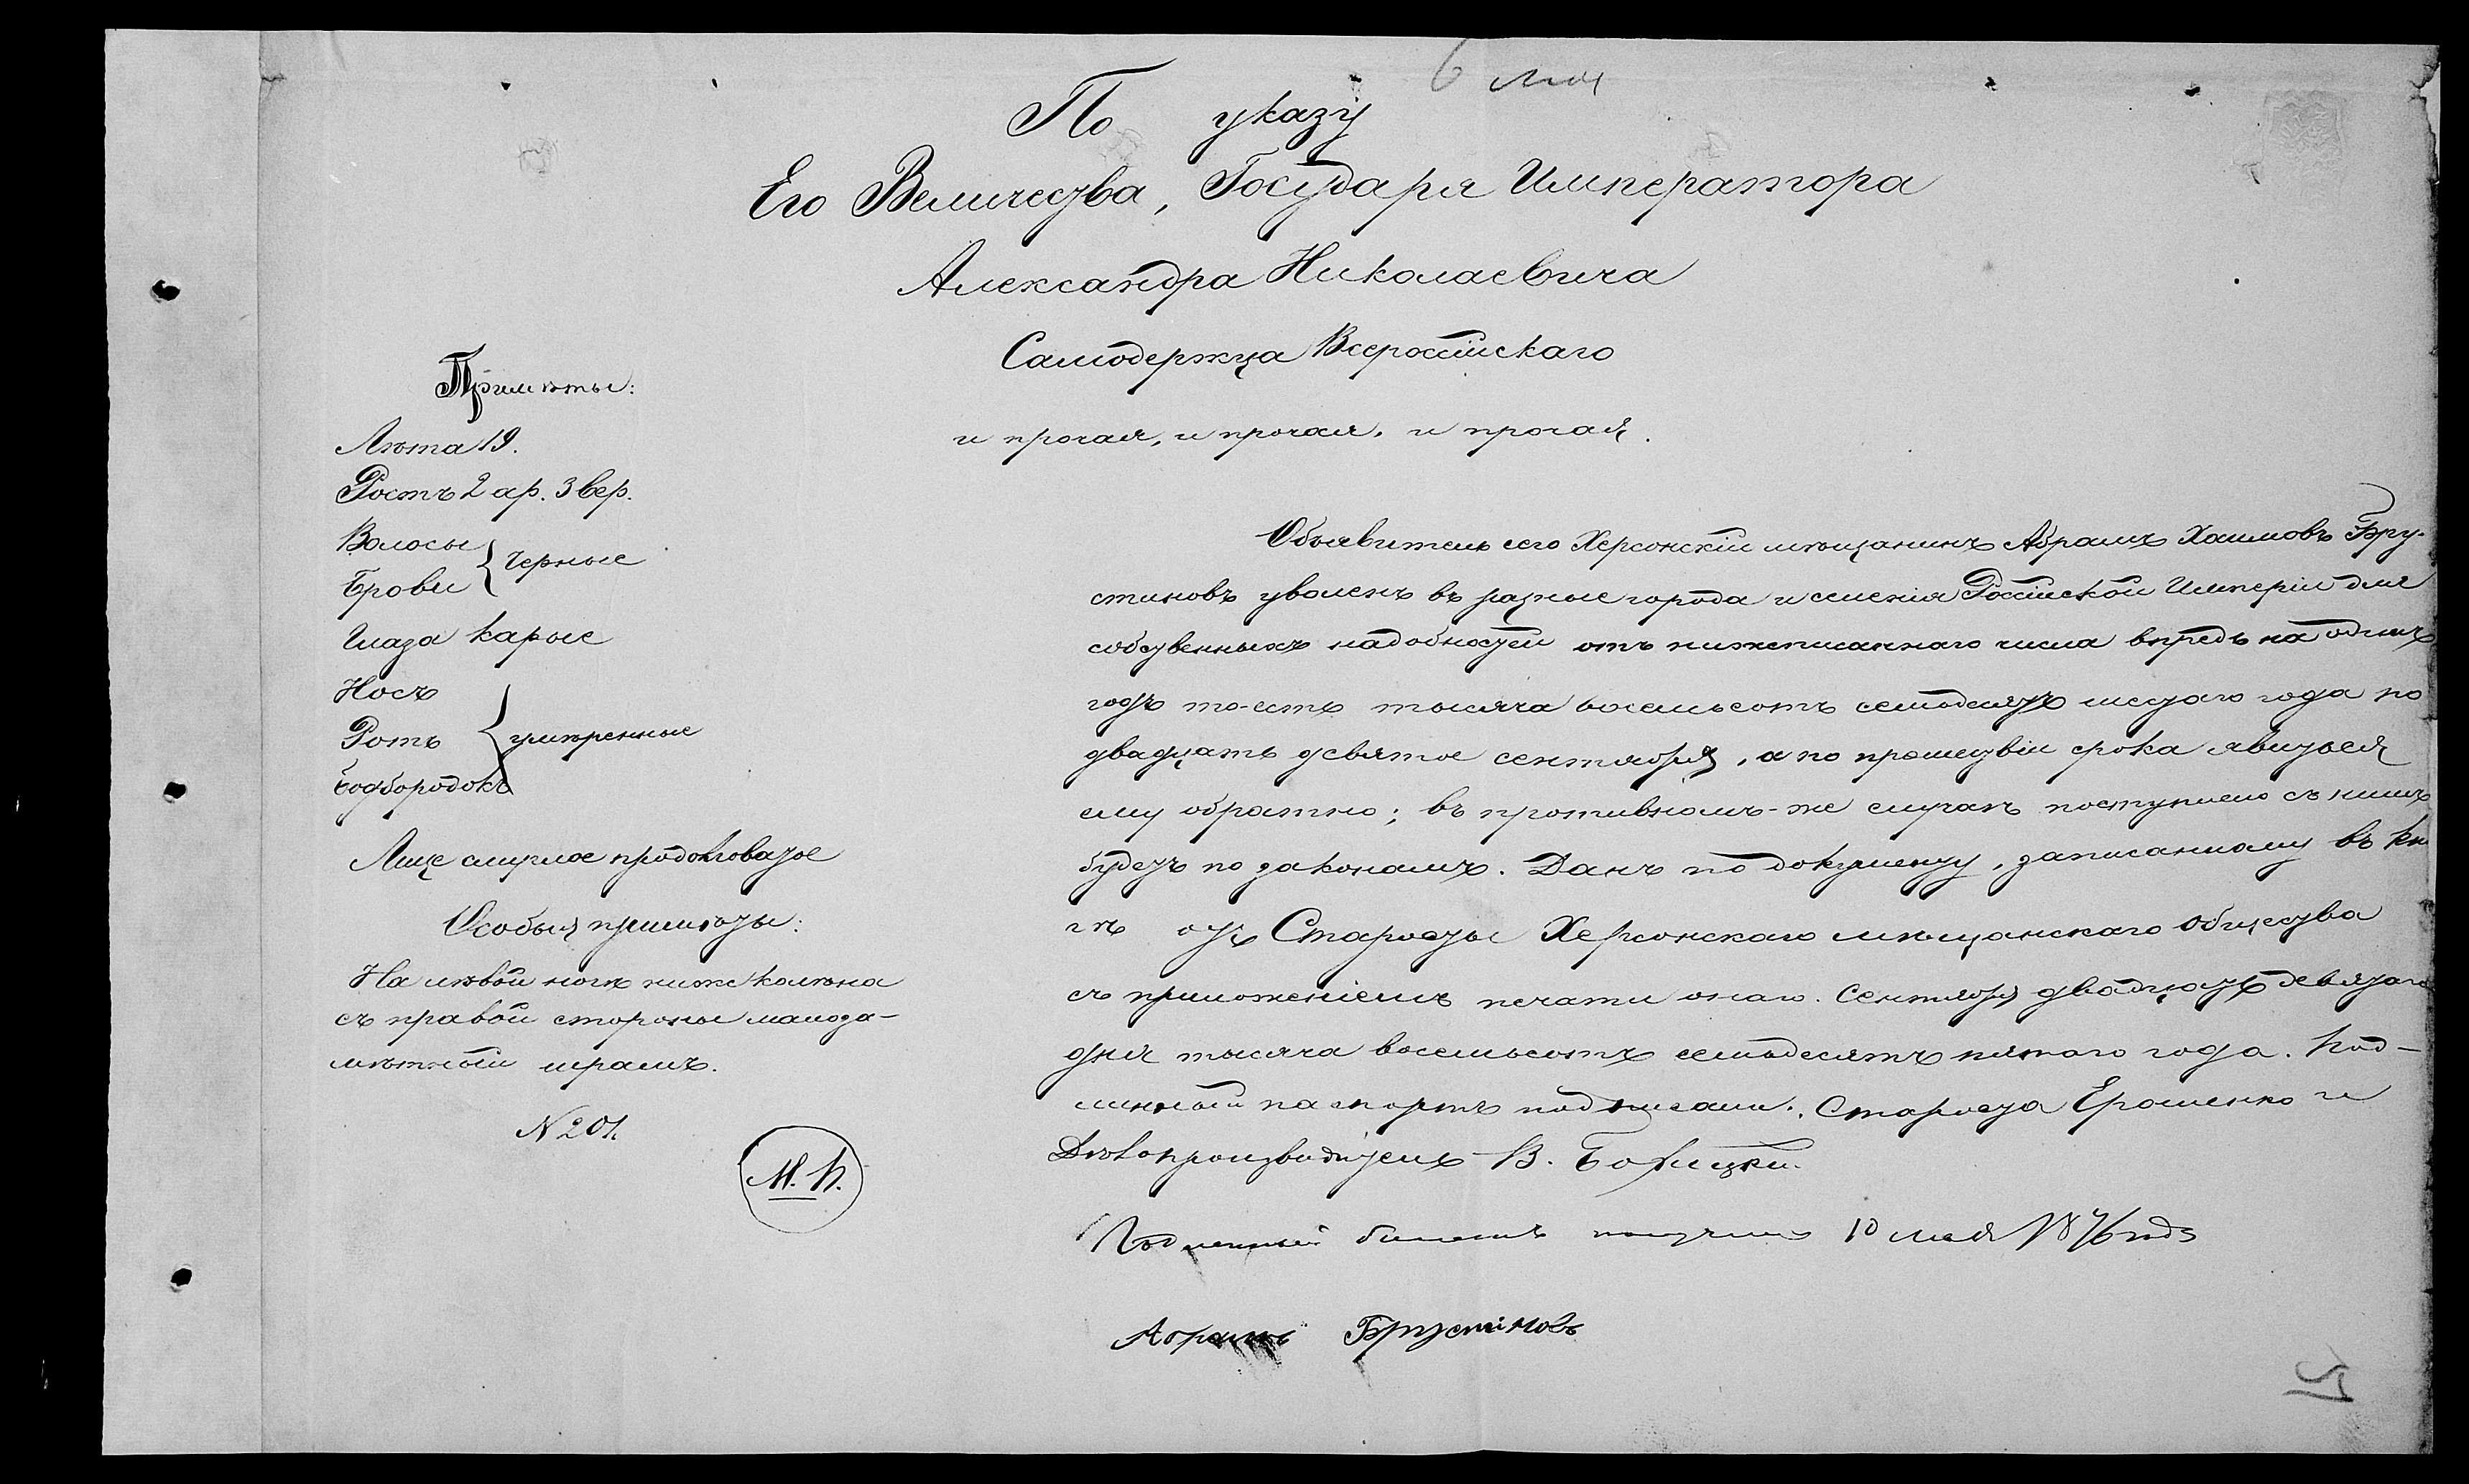 6 мая
По указу
Его Величества, Государя Императора
Александра Николаевича
Самодержца Всероссійскаго
и прочая, и прочая, и прочая.
Примѣты:
Лѣта 19.
Ростъ 2 ар. 3 вер.
Волосы
Брови } черные
Глаза карые
Носъ
Ротъ } умѣренные
Подбородокъ
Лице смуглое продолговатое
Особыя примѣты:
На лѣвой ногѣ ниже колѣна
съ правой стороны малоза-
мѣтный шрамъ.
N 201.
М. П.
Объявитель сего Херсонскій мѣщанинъ Абрамъ Хаимовъ Бру-
стиновъ уволенъ въ разные города и селенія Россійской Имперіи для
собственныхъ надобностей отъ нижеписаннаго числа впредь на одинъ
годъ то-есть тысяча восемьсотъ семьдесятъ шестаго года по
двадцать девятое сентября, а по прошествіи срока явиться
ему обратно; въ противномъ-же случаѣ поступлено съ нимъ
будетъ по законамъ. Данъ по документу, записанному въ кни
гѣ отъ Старосты Херсонскаго мѣщанскаго общества
съ приложеніемъ печати онаго. Сентября двадцать девятаго
дня тысяча восемьсотъ семьдесятъ пятаго года. Под-
линный паспортъ подписали: Староста Ерошенко и
Дѣлопроизводитель В.
Подленный билетъ получилъ 10 мая 1876 года
Абрамъ Брустиновъ
5